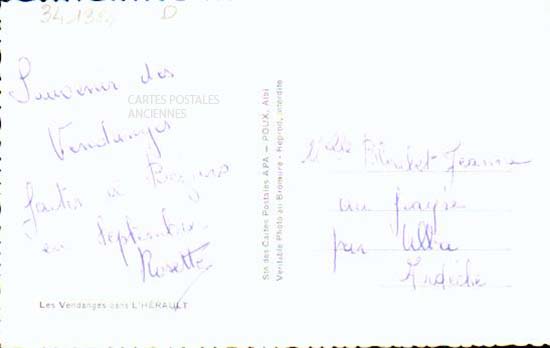 341394 D
Souvenir des
Vendanges
faites à Béziers
en Septembre
Rosette
CARTES POSTALES
ANCIENNES
Les Vendanges dans L'HÉRAULT
Sté des Cartes Postales A P A — POUX, Albi
Véritable Photo au Bromure - Reprod. interdite
Jeanne
au
par
Ardèche